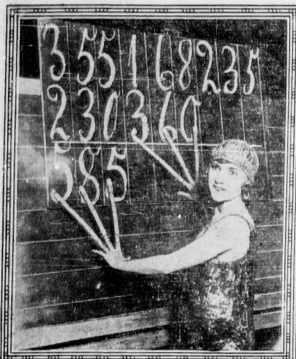 3 55 1 68235
2 30 3 60
585